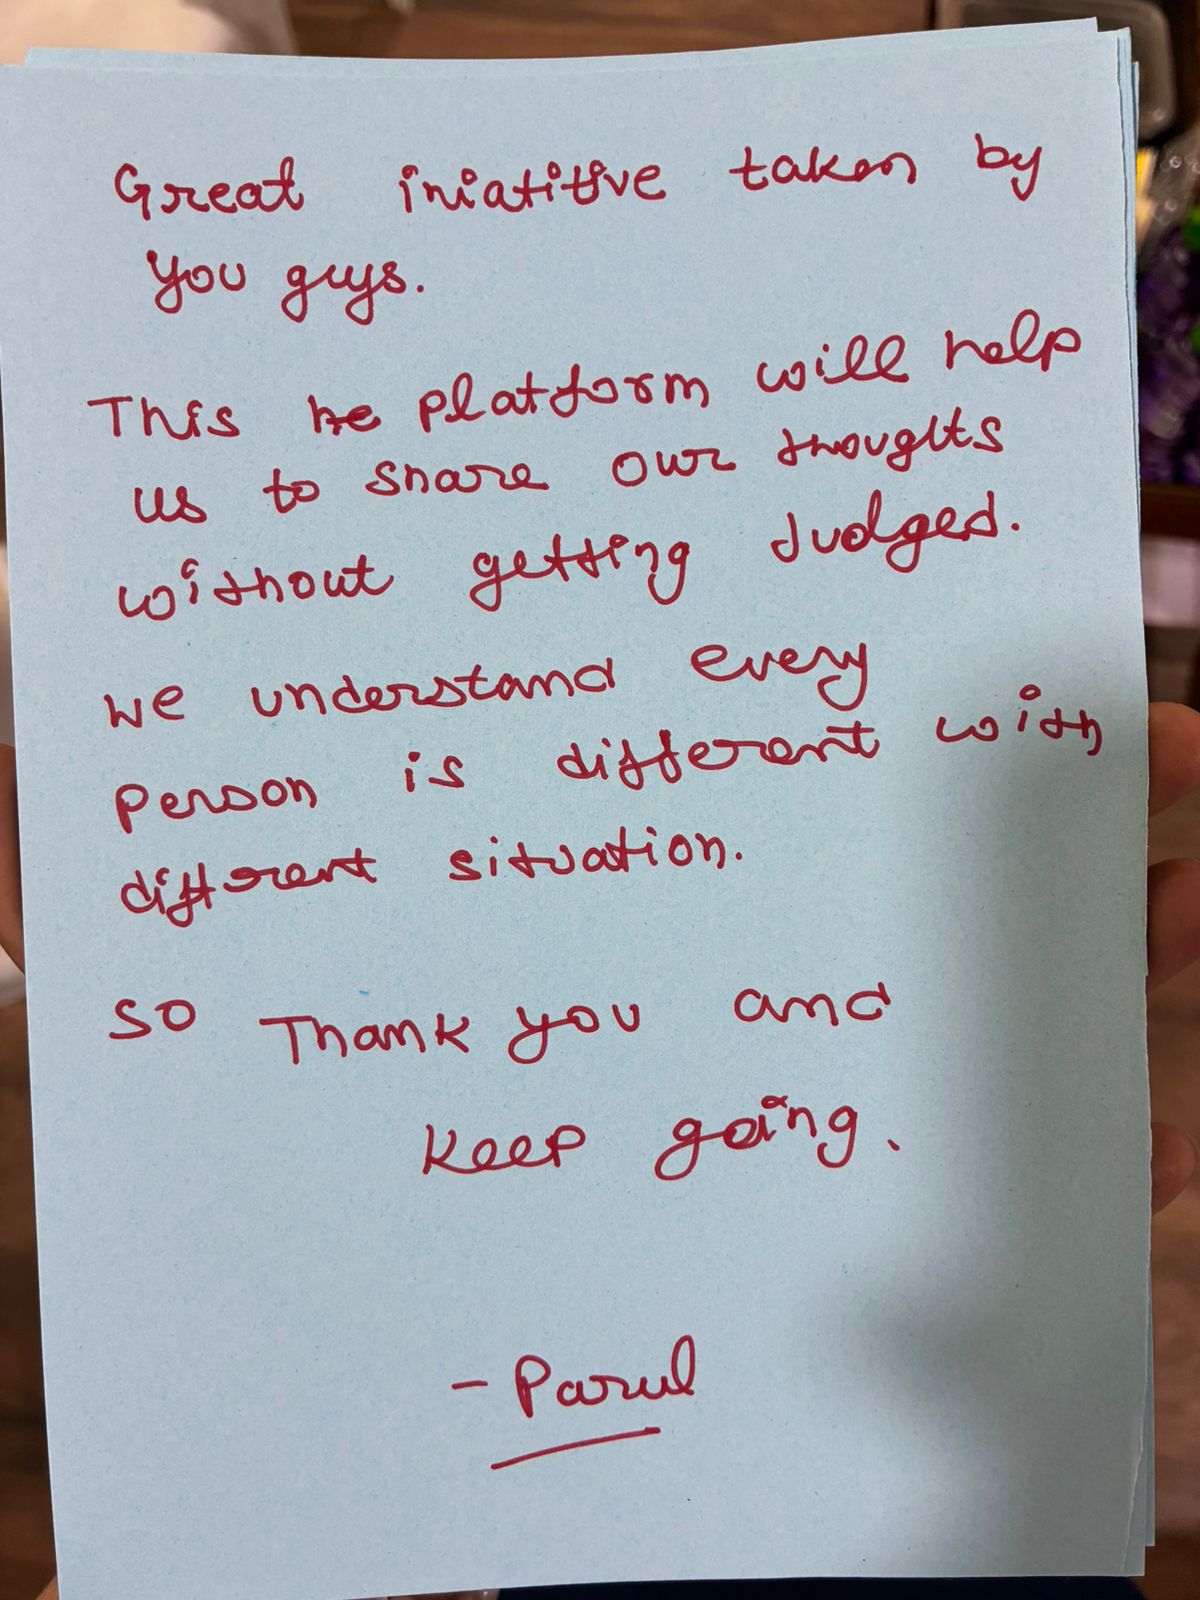 Great iniatitive taken by
you guys.
This he platform will help
us to share our thougts
without getting Judged.
We understand every
person is different with
different situation.
So Thank you and
keep going.
- Parul